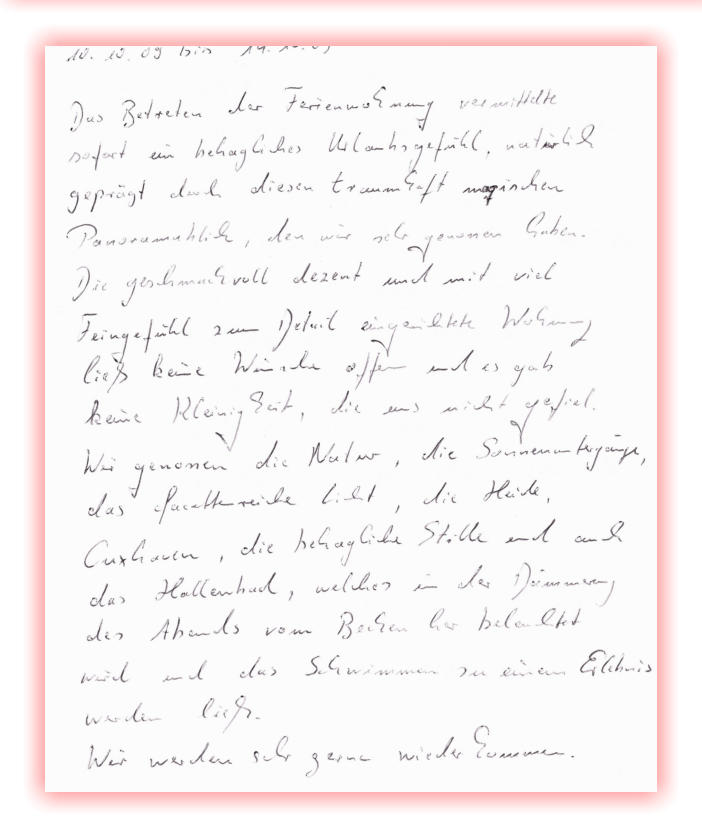 10.10.09 bis 14.10.09
Das Betreten der Ferienwohnung vermittelte
sofort ein behagliches Urlaubsgefühl, natürlich
geprägt durch diesen traumhaft magischen
Panoramablick, den wir sehr genossen haben.
Die geschmackvoll dezent und mit viel
Feingefühl zum Detail eingerichtete Wohnung
ließ keine Wünsche offen und es gab
keine Kleinigkeit, die uns nicht gefiel.
Wir genossen die Natur, die Sonnenuntergänge,
das facettenreiche Licht, die Heide,
Cuxhaven, die behagliche Stille und auch
das Hallenbad, welches in der Dämmerung
des Abends vom Becken her beleuchtet
wird und das Schwimmen zu einem Erlebnis
werden ließ.
Wir werden sehr gerne wieder kommen.